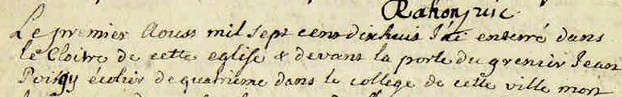 Le premier Aoust mil sept cens dixhuit J'ai enterré dans
le Cloitre de cette eglise & devant la porte du grenier Jean
écolier de quatrième dans le college de cette ville mort